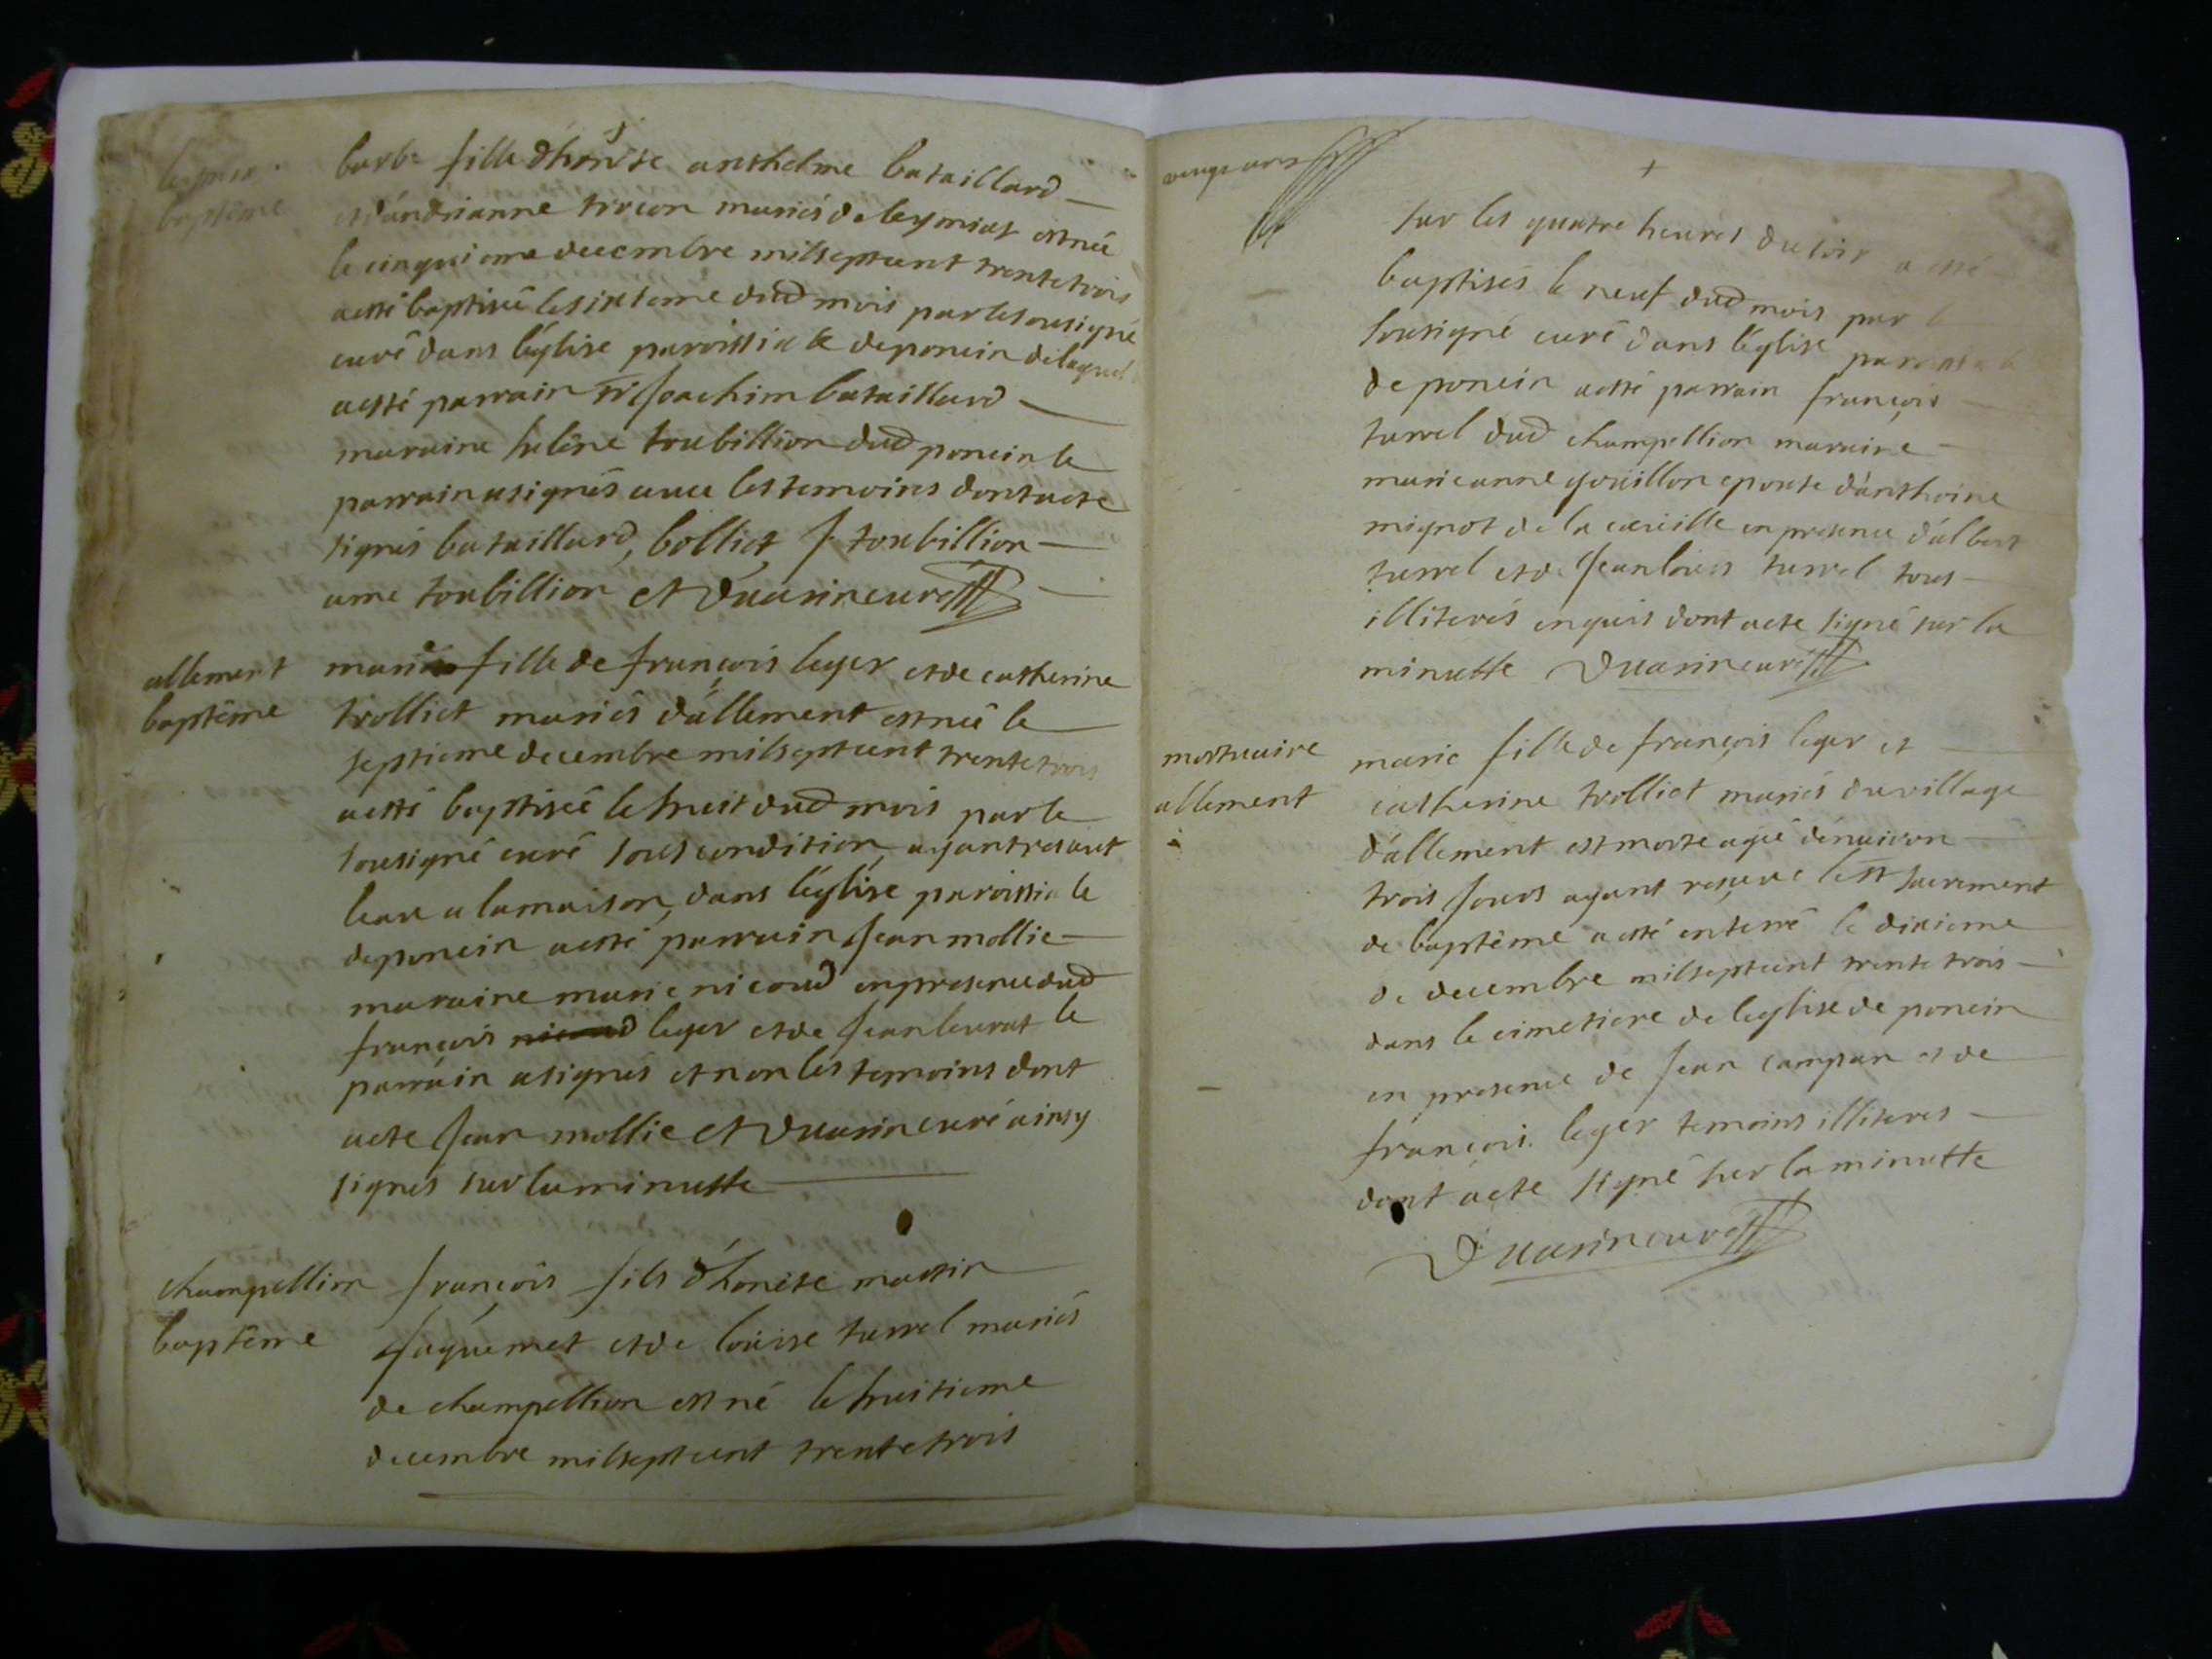 leymiat
baptême
barbe fille d'honête anthelme bataillard
et d'andrianne trocon mariés de leymiat est née
le cinquieme decembre mil sept cent trente trois
a esté baptisée le sixieme dud mois par le sousigné
curé dans l'église paroissiale de poncin de laquel
a esté parrain sr joachim bataillard
maraine helêne toubillion dud poncin le
parrain a signés avec les temoins dont acte
signés bataillard, bolliet j toubillion
ame toubillion et Duarin curé
allement
baptême
marie fille de françois leger et de catherine
trolliet mariés d'allement est née le
septieme decembre mil sept cent trente trois
a esté baptisée le huit dud mois par le
sousigné curé sous condition, ayant resaut
leau a la maison, dans l'église paroissiale
de poncin a esté parrain jean mollie
maraine marie nicoud en presence dud
françois leger et de jean leurat le
parrain a signés et non les temoins dont
acte jean mollie et Duarin curé ainsy
signés sur la minutte
champellion
baptême
françois fils d'honête martin
jaquemet et de loüise turrel mariés
de champellion est né le huitieme
decembre mil sept cent trente trois
sur les quatre heures du soir a esté
baptisés le neuf dud mois par l
sousigné curé dans l'église paroissia
de poncin a esté parrain françois
turrel dud champellion maraine
marieanne goüillon epouse d'anthoine
mignot de la cueille en presence d'albert
turrel et de jean loüis turrel tous
illiterés enquis dont acte signé sur la
minutte Duarin curé
mortuaire
allement
marie fille de françois leger et
catherine trolliet mariés du village
d'allement est morte agée d'enuiron
trois jours ayant reçeue le st sacrement
de baptême a esté enterré le dixieme
de decembre mil sept cent trente trois
dans le cimetiere de leglise de poncin
en presence de jean campan et de
françois leger temoins illiteres
dont acte signé sur la minutte
Duarin curé